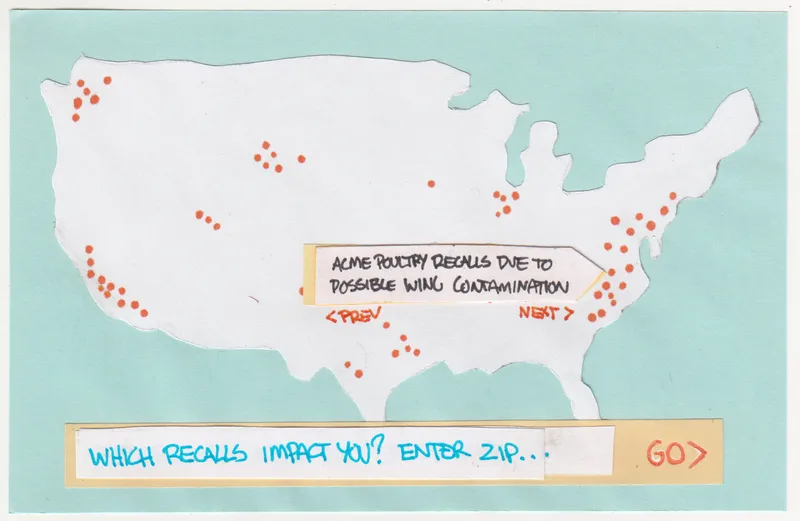 ACME POULTRY RECALLS DUE TO
POSSIBLE WING CONTAMINATION
< PREV NEXT >
WHICH RECALLS IMPACT YOU? ENTER ZIP... GO>